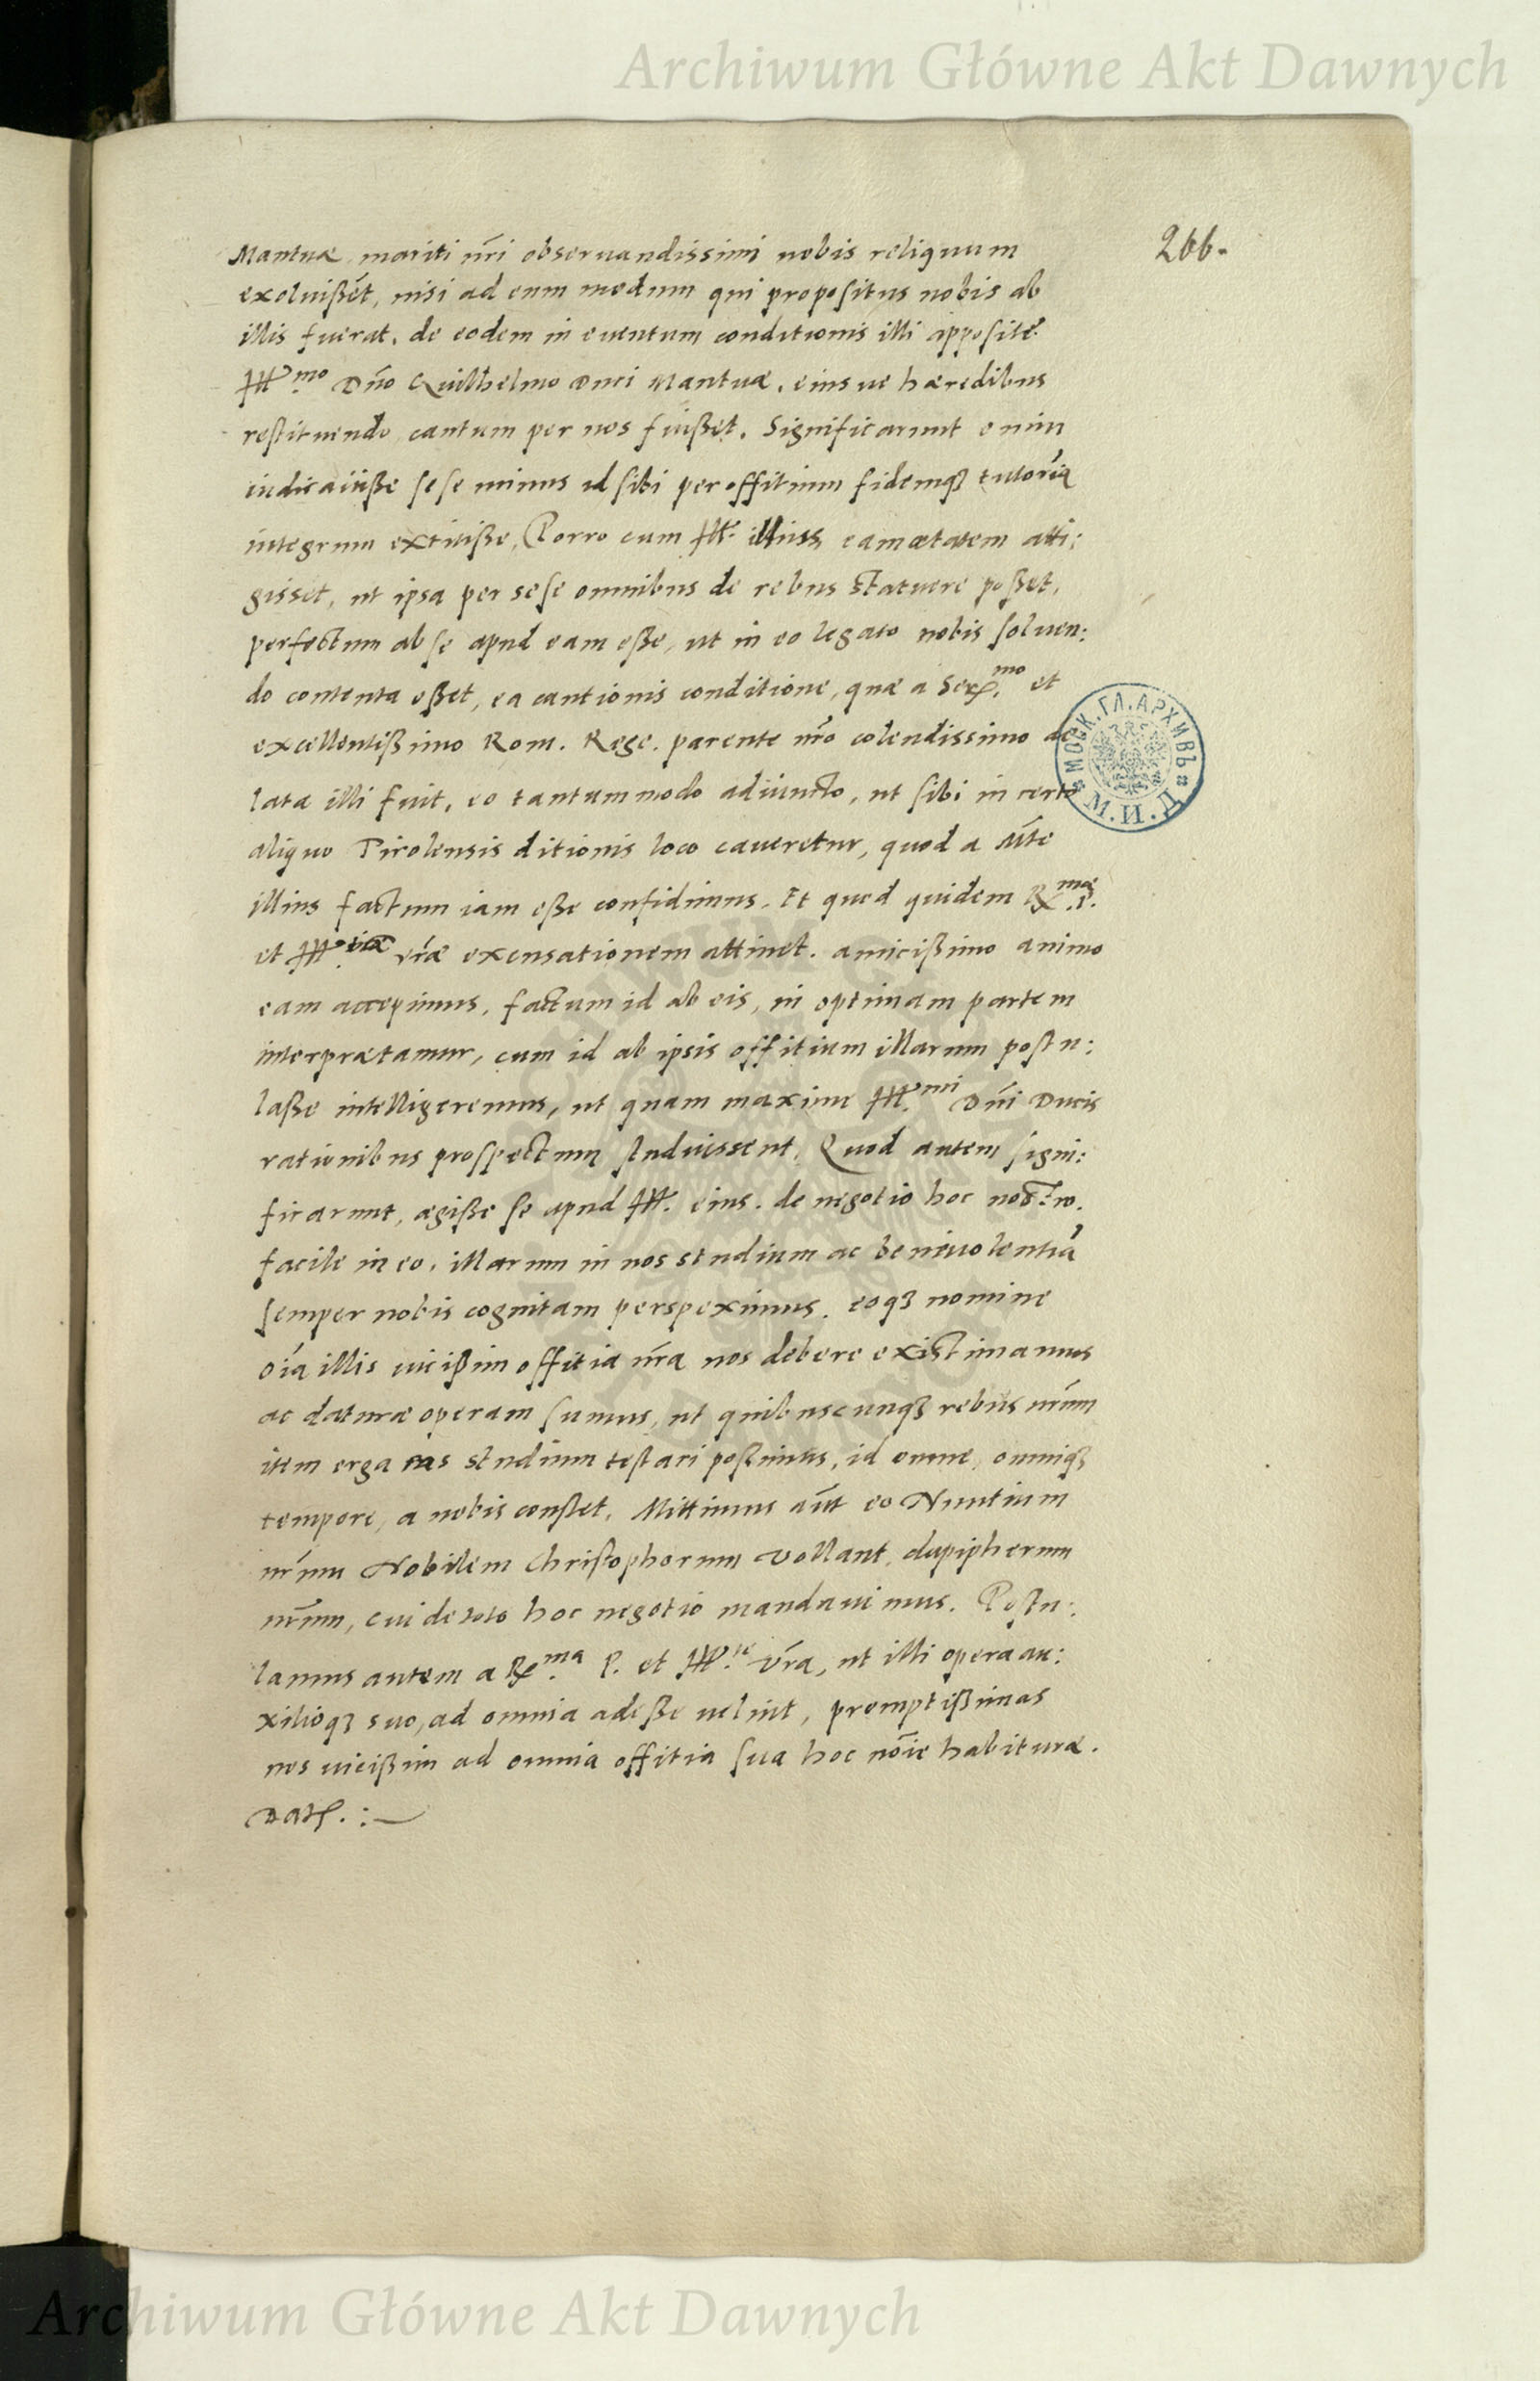 Archiwum Główne Akt Dawnych
266.
Mantuæ mariti nr̃i obseruandissimi nobis reliquum
exoluißẽt, nisi ad eum modum qui propositus nobis ab
illis fuerat, de eodem in euentum conditionis illi appositẽ
Ill.mo Dño Guilhelmo Duci Mantuæ, eiusue hæredibus
restituendo, cautum per nos fuißet. Significarunt enim
iudicauiße sese minus id sibi per offitium fidemq3 tutoriã
integrum extitiße, Porro cum Ill. illius eam ætatem atti:
gisset, ut ipsa per sese omnibus de rebus statuere poßet,
perfectum ab se apud eam eße, ut in eo legato nobis soluen:
do contenta eßet, ea cautionis conditione, quæ a Ser.mo et
excellentißimo Rom. Rege. parente nr̃o colendissimo de
lata illi fuit, eo tantummodo adiuncto, ut sibi in certo
aliquo Tirolensis ditionis loco caueretur, quod a Mte
illius factum iam eße confidimus. Et quod quidem R.mæ P.
et Ill.tiæ vr̃æ excusationem attinet. amicißimo animo
eam accepimus, factum id ab eis, in optimam partem
interprætamur, cum id ab ipsis offitium illarum postu:
laße intelligeremus, ut quam maxime Ill.mi Dñi Ducis
rationibus prospectum studuissent, Quod autem signi:
ficarunt, ægiße se apud Ill. eius. de negotio hoc nostro.
facile in eo, illarum in nos studium ac beniuolentiã
semper nobis cognitam perspeximus. eoq3 nomine
oĩa illis uicißim offitia nr̃a nos debere existimamus
ac daturæ operam sumus, ut quibuscunq3 rebus nr̃um
item erga eas studium testari poßimus, id omne, omniq3
tempore, a nobis constet. Mittimus aũt eo Nuntium
nr̃um Nobilem Christophorum Vollant, dapipherum
nr̃um, cui de toto hoc negotio mandauimus. Postu:
lamus autem a R.ma P. et Ill.te Vr̃a, ut illi opera au:
xilioq3 suo, ad omnia adeße uelint, promptißimas
nos uicißim ad omnia offitia sua hoc nõie habituræ.
Dat. :—
МОСК.ГЛ.АРХИВЪ
М.И.Д
Archiwum Główne Akt Dawnych